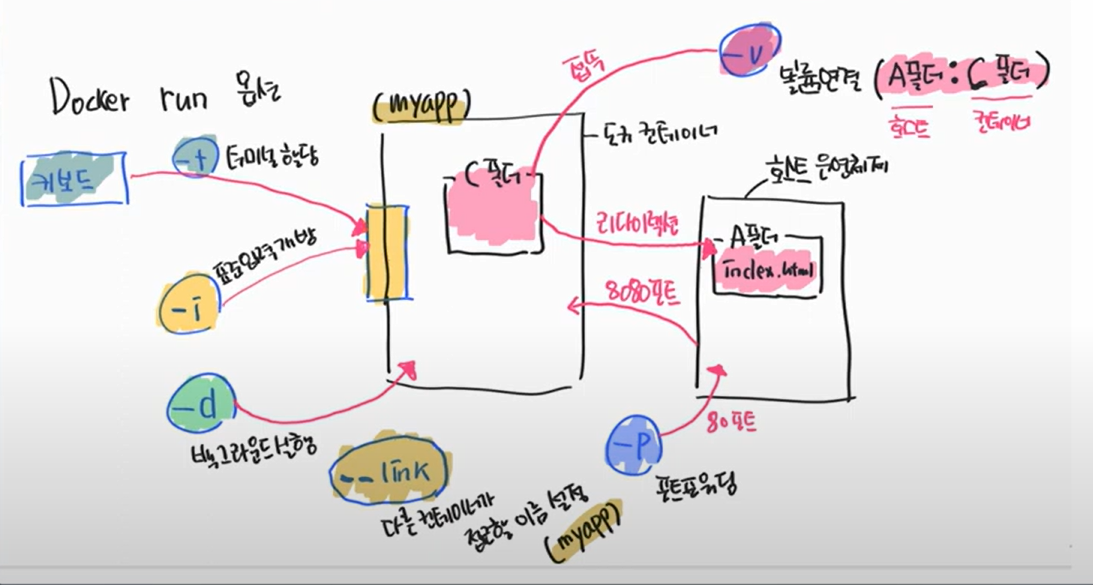 Docker run 옵션
키보드
-t
터미널 할당
표준입력 개방
-i
-d
백그라운드 실행
--link
다른 컨테이너가
접근할 이름 설정
(myapp)
(myapp)
도커 컨테이너
C 폴더
접속
-v
볼륨연결 (A폴더 : C 폴더)
호스트
컨테이너
호스트 운영체제
리다이렉션
A폴더
index.html
8080포트
80포트
-P
포트포워딩